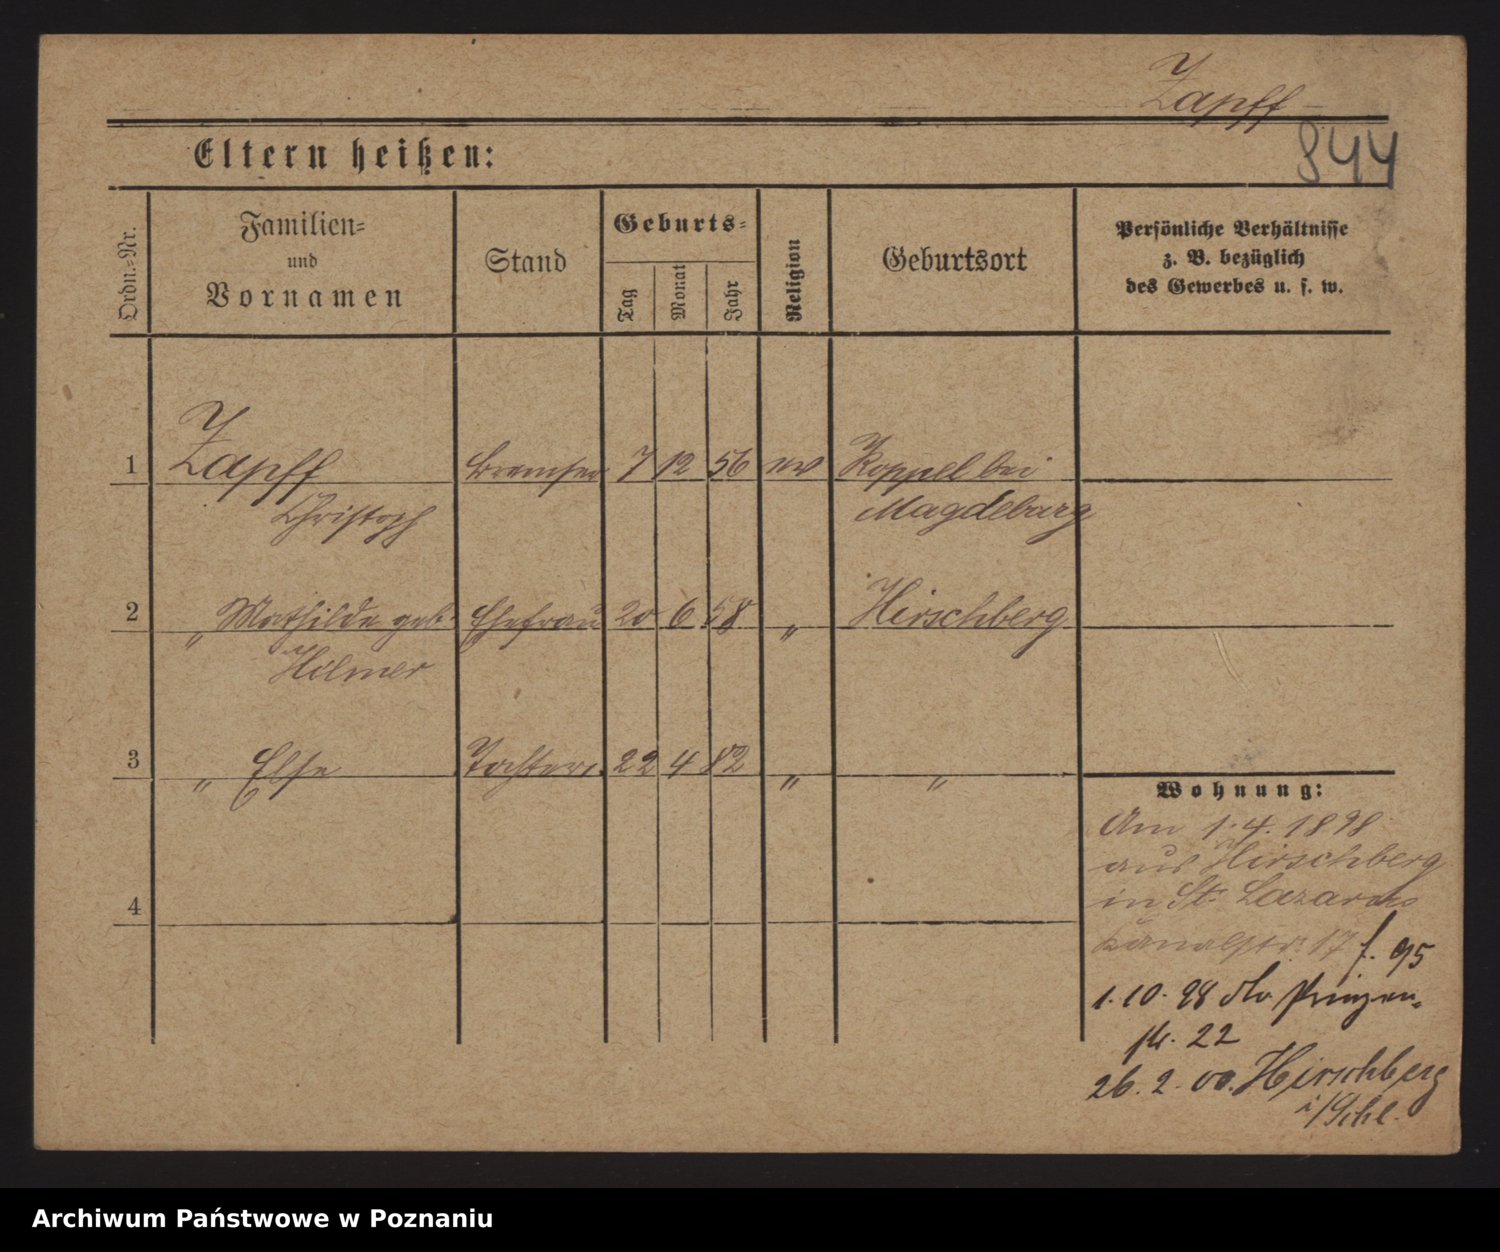 Zapff
844
Eltern heißen:
Ordn.-Nr.
Familien-
und
Vornamen
Stand
Geburts-
Tag
Monat
Jahr
Religion
Geburtsort
Persönliche Verhältnisse
z. B. bezüglich
des Gewerbes u. s. w.
1 Zapff Bremser 7 12 56 ev Koppel bei
Christoph Magdeburg
2 " Mathilde geb. Ehefrau 20 6 58 " Hirschberg
Hilmer
3 " Else Tochter 22 4 82 " "
Wohnung:
Am 1.4.1898
aus Hirschberg
in St. Lazarus
Kanalstr. 17 f. 95
1.10.98 Prinzen-
str. 22
26.2.00. Hirschberg
i/Schl.
4
Archiwum Państwowe w Poznaniu